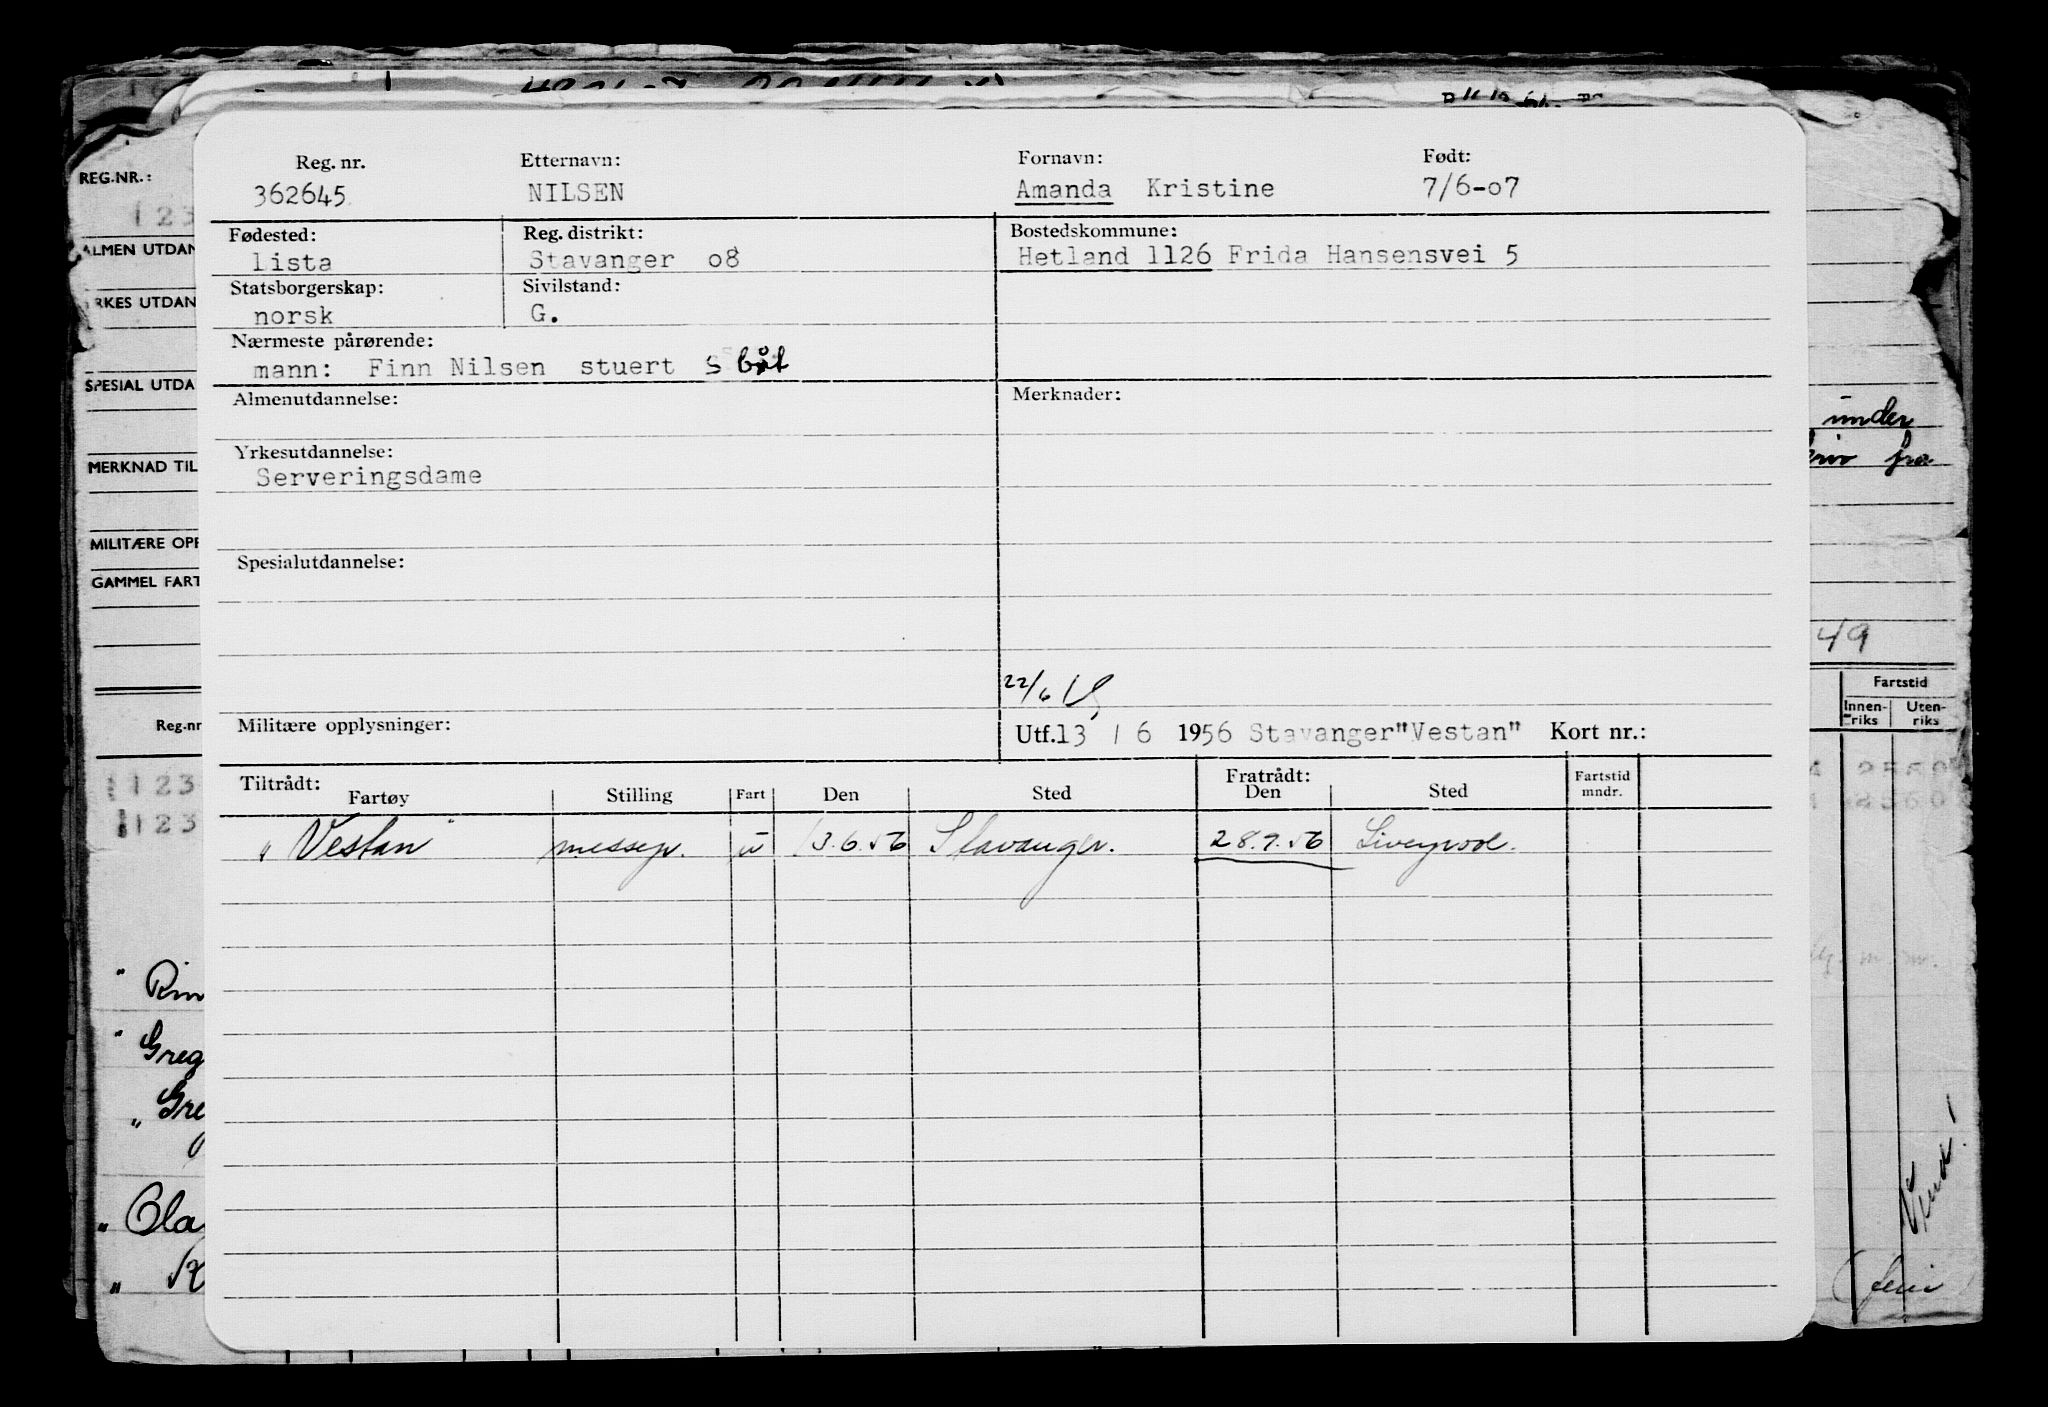 REG.NR.:
123
ALMEN UTDAN
RKES UTDAN
SPESIAL UTDA
MERKNAD TIL
MILITÆRE OPP
GAMMEL FART
Reg.nr
123
123
Reg. nr. Etternavn: Fornavn: Født:
362645 NILSEN Amanda Kristine 7/6-07
Fødested: Reg. distrikt: Bostedskommune:
lista Stavanger 08 Hetland 1126 Frida Hansensvei 5
Statsborgerskap: Sivilstand:
norsk G.
Nærmeste pårørende:
mann: Finn Nilsen stuert s båt
Almenutdannelse: Merknader:
Yrkesutdannelse:
Serveringsdame
Spesialutdannelse:
22/6
Militære opplysninger: Utf.13 / 6 1956 Stavanger"Vestan" Kort nr.:
Tiltrådt: Fratrådt: Fartstid
Fartøy Stilling Fart Den Sted Den Sted mndr.
"Vestan" messep. u 13.6.56 Stavanger. 28.9.56 Liverpool.
under
fra
49
Fartstid
Innen- Uten-
riks riks
2560
2560
" Greg
" Gre
" Ola